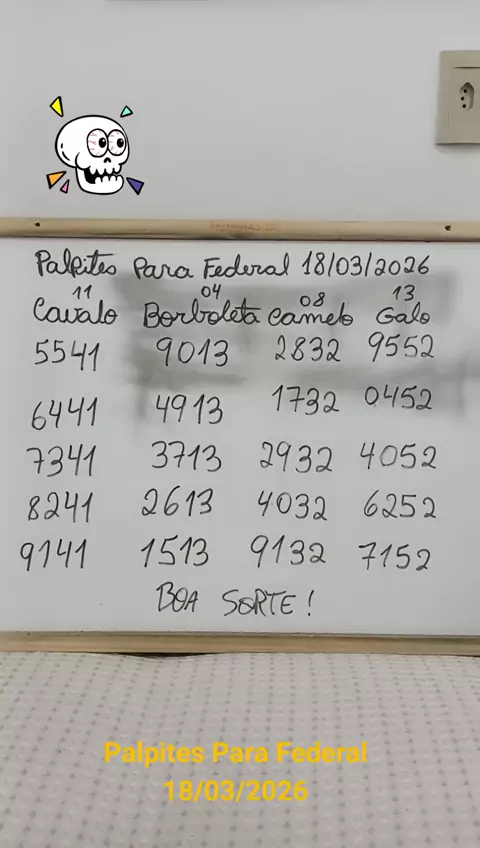 Palpites Para Federal 18/03/2026
11 04 08 13
Cavalo Borboleta Camelo Galo
5541 9013 2832 9552
6441 4913 1732 0452
7341 3713 2932 4052
8241 2613 4032 6252
9141 1513 9132 7152
BOA SORTE!
Palpites Para Federal
18/03/2026